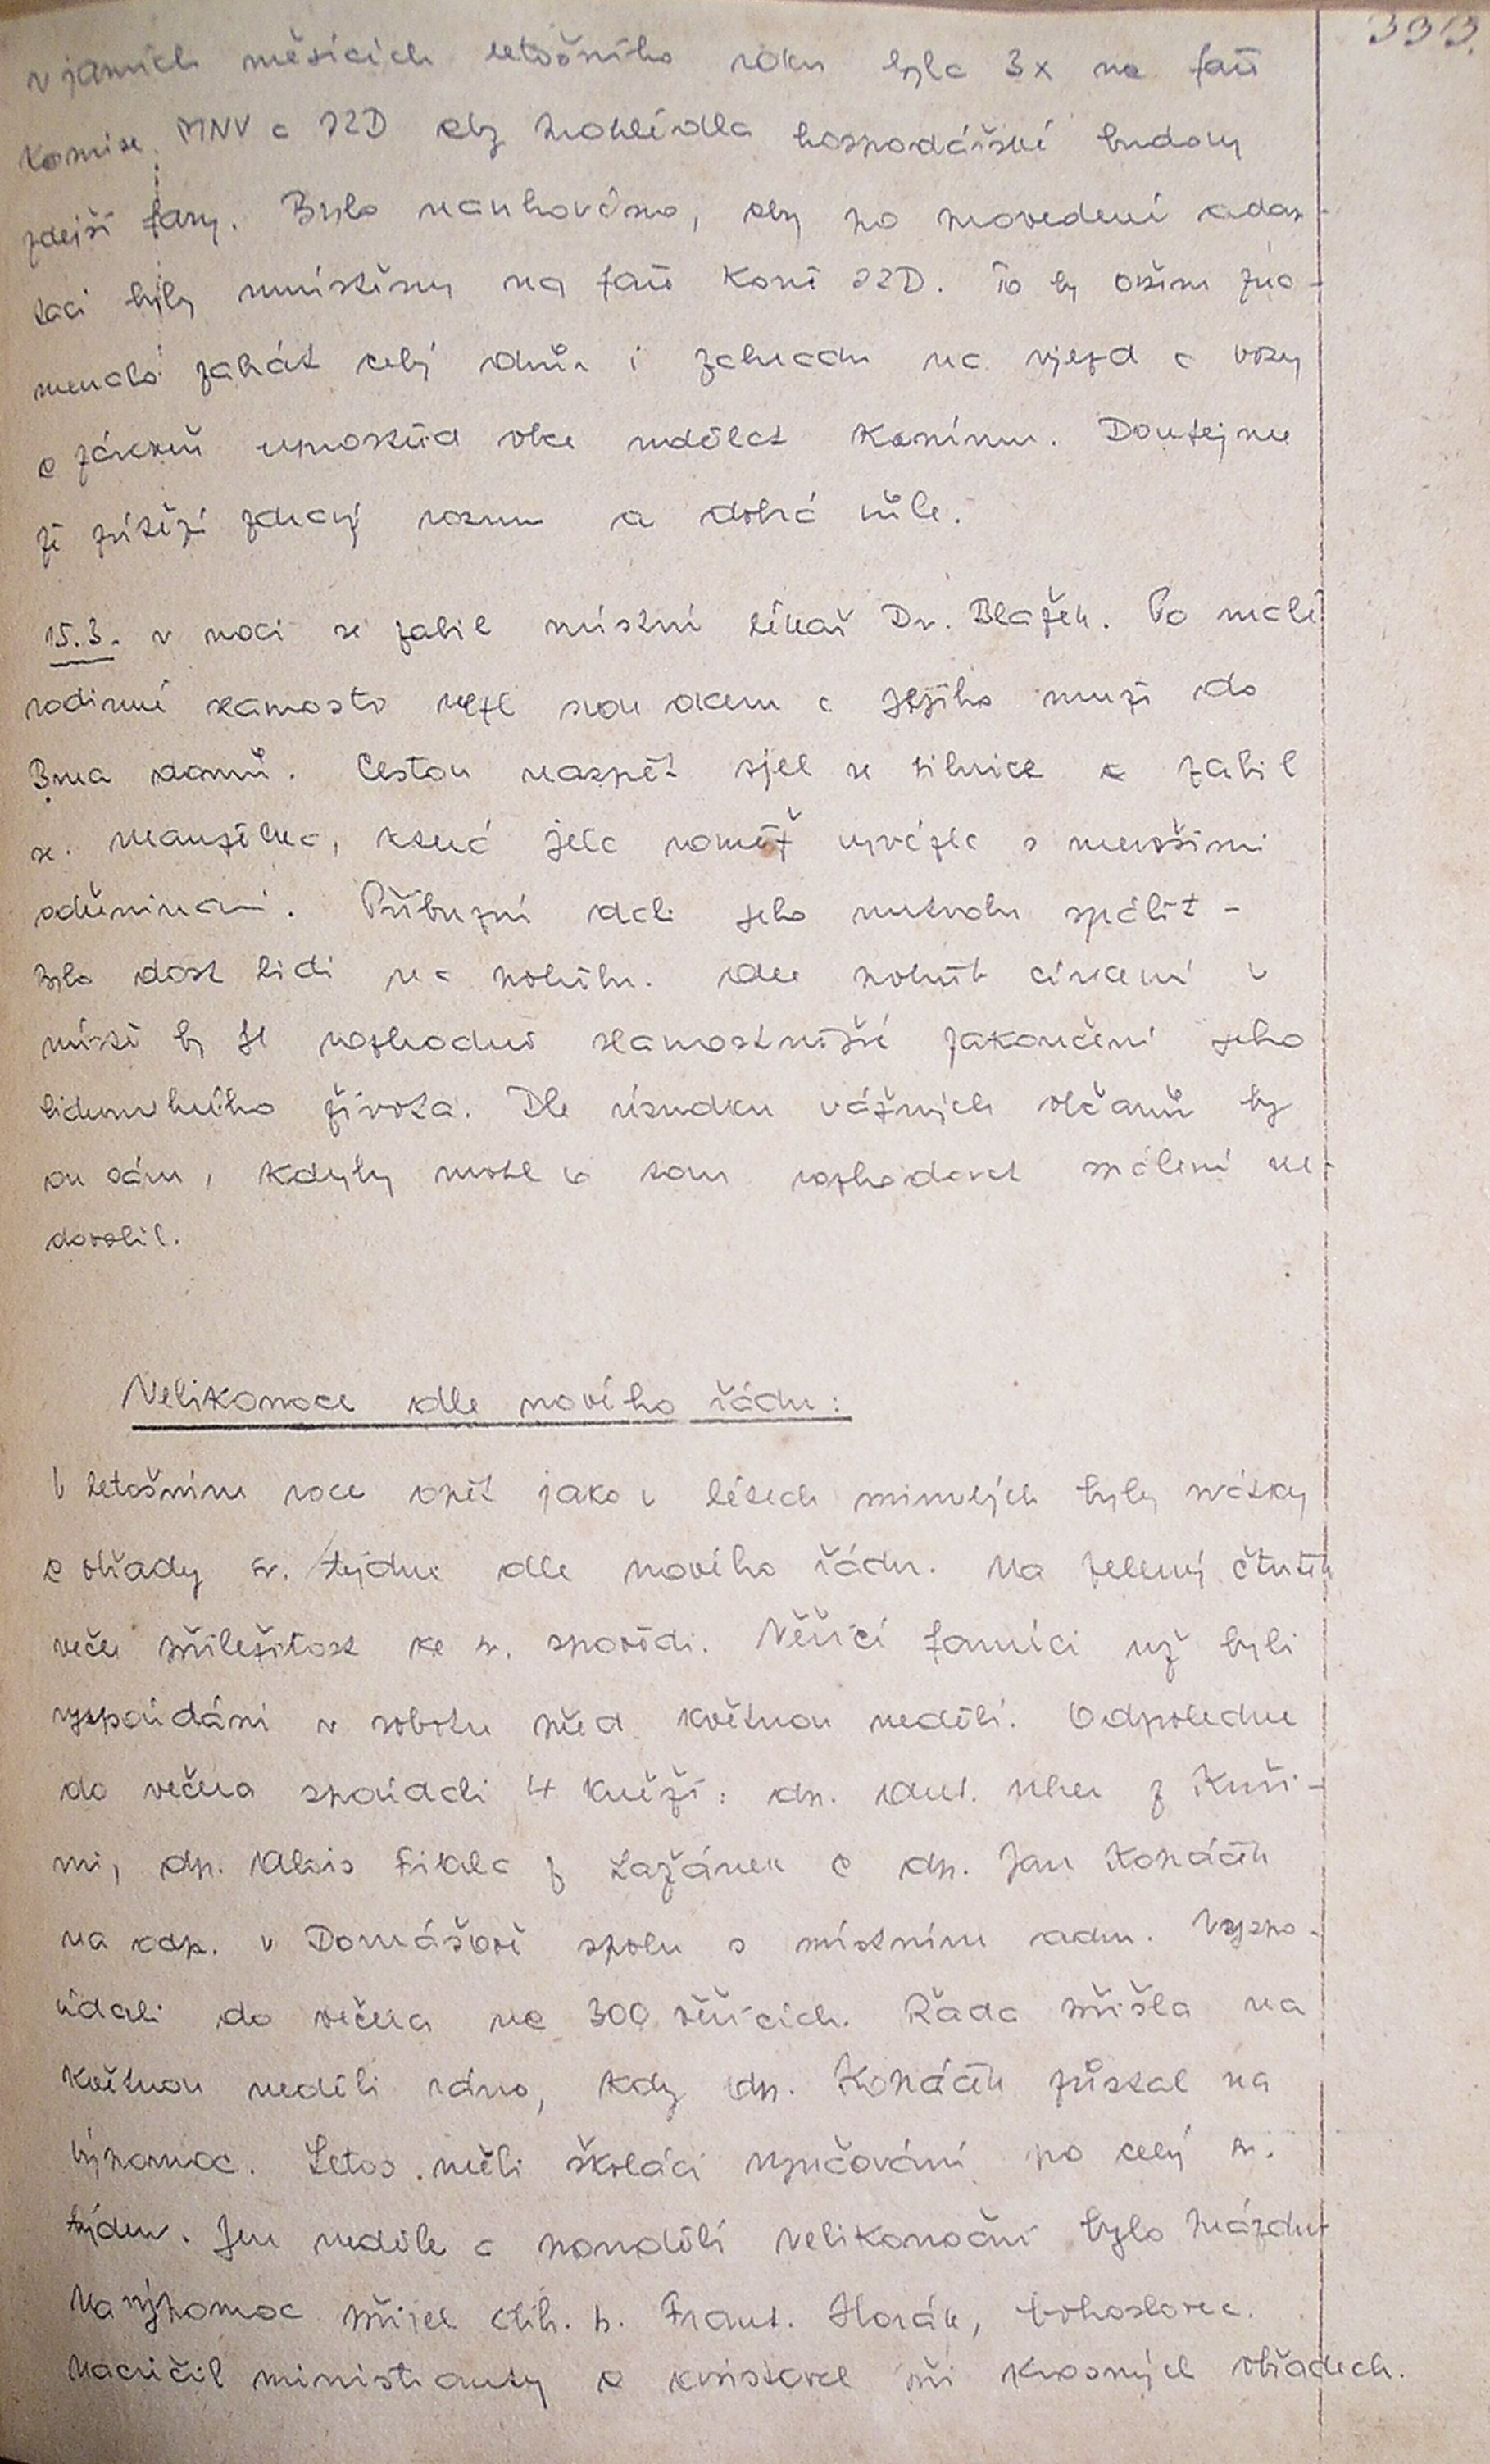 333.
v jarních měsících letošního roku byla 3x na faře
komise MNV a JZD aby prohlédla hospodářské budovy
zdejší fary. Bylo navrhováno, aby po provedení adap-
taci byly umístěny na faře koně JZD. To by ovšem zna-
menalo zabrat celý dvůr i zahradu na vjezd a vozy
a zároveň uprostřed obce udělat kasínu. Doufejme
že zvítězí zdravý rozum a dobrá vůle.
15.3. v noci se zabil místní lékař Dr. Blažek. Po malé
rodinné slavnosti vezl svou dceru a jejího muže do
Brna domů. Cestou nazpět sjel se silnice a zabil
se. Manželka, která jela rovněž vyvázla s menšími
oděninami. Příbuzní dali jeho mrtvolu spálit -
Bylo dost lidí na pohřbu. Ale pohřeb církevní v
místě by byl rozhodně slavnostnější zakončení jeho
lidumilného života. Dle úsudku vážných občanů by
on sám, kdyby mohl o tom rozhodovat spálení ne-
dovolil.
Velikonoce dle nového řádu:
V letošním roce opět jako v létech minulých byly svátky
a obřady sv. týdne dle nového řádu. Na zelený čtvrtek
večer příležitost ke sv. zpovědi. Věřící farníci už byli
vyzpovídáni v sobotu před květnou nedělí. Odpoledne
do večera zpovídali 4 kněží: dp. Ant. Uher z Kuři-
mi, dp. Alois Fikala z Lažánek a dp. Jan Kopáček
na odp. v Domášově spolu s místním adm. Vyzpo-
vídali do večera na 300 věřících. Řada přišla na
Květnou neděli ráno, kdy dp. Kopáček zůstal na
výpomoc. Letos měli školáci vyučování po celý sv.
týden. Jen neděle a pondělí velikonoční bylo prázdno
Na výpomoc přijel ctih. p. Frant. Horák, bohoslovec.
Nacvičil ministranty a asistoval při krásných obřadech.